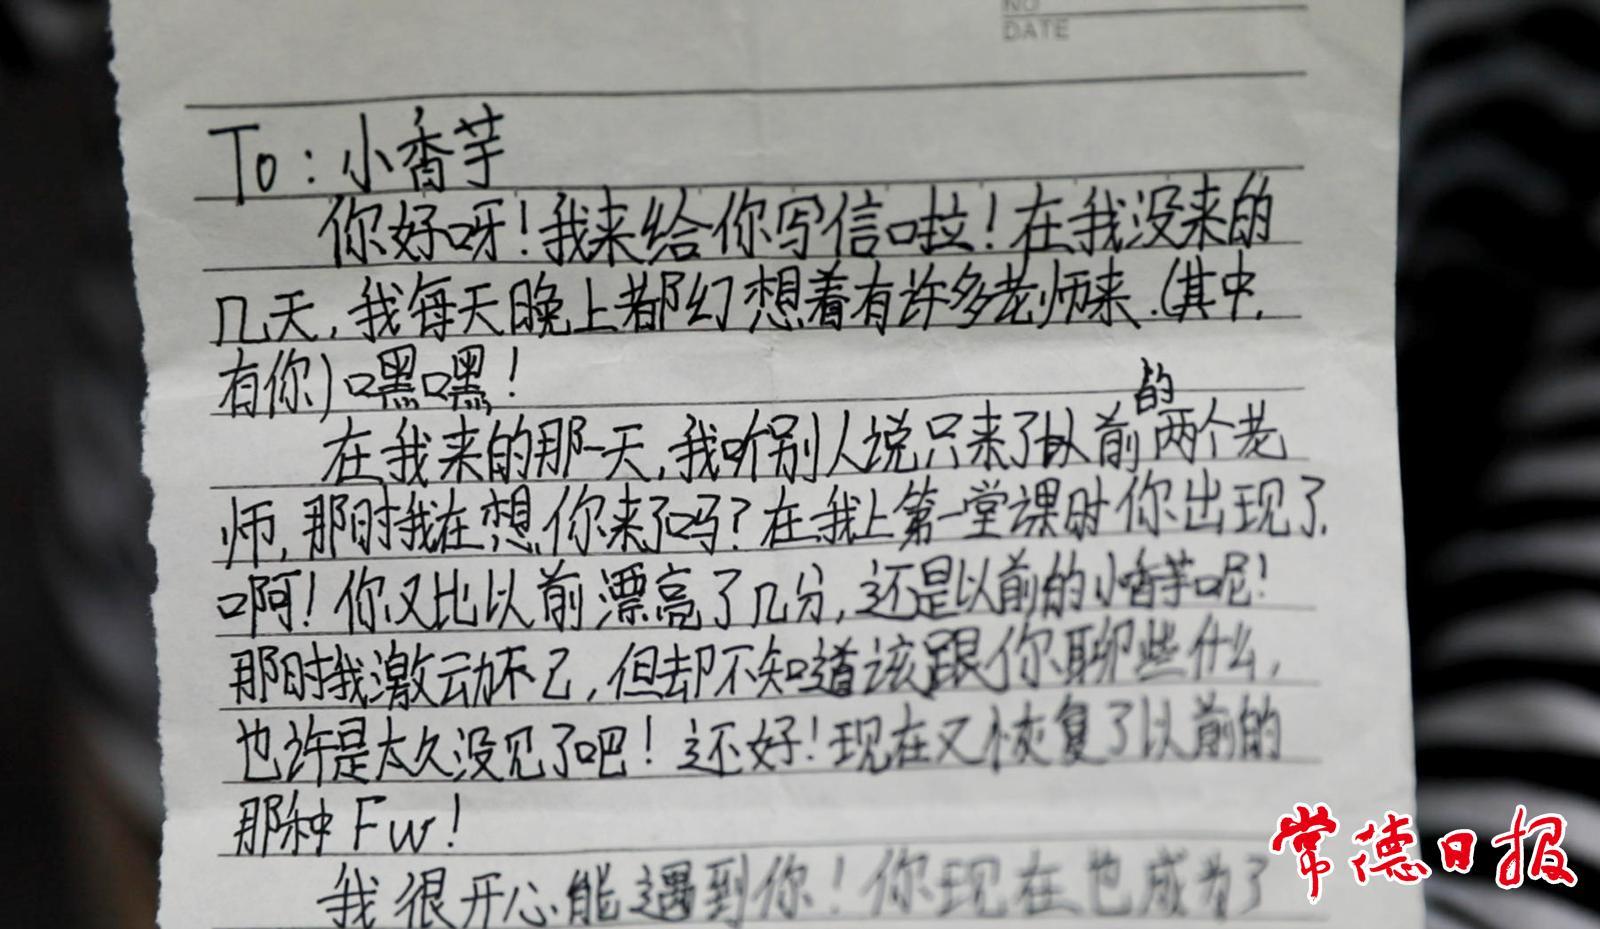 NO
DATE
To:小香芋
你好呀!我来给你写信啦!在我没来的
几天,我每天晚上都幻想着有许多老师来.(其中,
有你)嘿嘿!
在我来的那一天,我听别人说只来了以前的两个老
师,那时我在想,你来了吗?在我上第一堂课时你出现了,
啊!你又比以前漂亮了几分,还是以前的小香芋呢!
那时我激动不已,但却不知道该跟你聊些什么,
也许是太久没见了吧!还好!现在又恢复了以前的
那种Fw!
我很开心能遇到你!你现在也成为了
常德日报